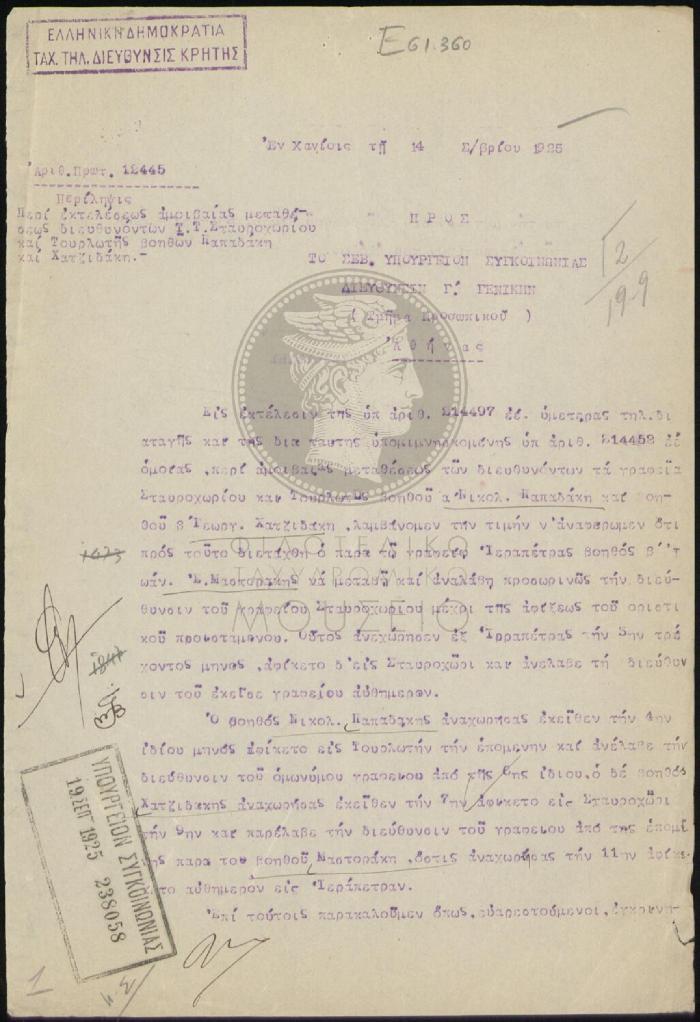 ΕΛΛΗΝΙΚΗ ΔΗΜΟΚΡΑΤΙΑ
ΤΑΧ. ΤΗΛ. ΔΙΕΥΘΥΝΣΙΣ ΚΡΗΤΗΣ
Ε61.360
Ἐν Χανίοις τῇ 14 Σ/βρίου 1925
Ἀριθ. Πρωτ. 12445
Περίληψις
Περί ἐκτελέσεως ἀμοιβαίας μεταθέ-
σεως διευθυνόντων Τ.Τ.Σταυροχωρίου
καί Τουρλωτῆς βοηθῶν Παπαδάκη
καί Χατζιδάκη.-
ΠΡΟΣ
ΤΟ ΣΕΒ. ΥΠΟΥΡΓΕΙΟΝ ΣΥΓΚΟΙΝΩΝΙΑΣ
ΔΙΕΥΘΥΝΣΙΝ Γ. ΓΕΝΙΚΗΝ
( Τμῆμα Προσωπικοῦ )
Ἀθήνας
12
19-9
Εἰς ἐκτέλεσιν τῆς ὑπ ἀριθ. 214497 ἐ.ἔ. ὑμετέρας τηλ.δι
αταγῆς καί τῆς διά ταύτης ὑπομιμνησκομένης ὑπ ἀριθ. 214458 ἐ.ἔ
ὁμοίας ,περί ἀμοιβαίας μεταθέσεως τῶν διευθυνόντων τά γραφεῖα
Σταυροχωρίου καί Τουρλωτῆς βοηθοῦ α Νικολ. Παπαδάκη καί βοη-
θοῦ β Γεωργ. Χατζιδάκη ,λαμβάνομεν τήν τιμήν ν'ἀναφέρωμεν ὅτι
πρός τοῦτο διετάχθη ὁ παρά τῷ γραφείῳ Ἱεραπέτρας βοηθός β΄τ
ωάν. Ε. Μαστοράκης νά μεταβῇ καί ἀναλάβῃ προσωρινῶς τήν διεύ-
θυνσιν τοῦ γραφείου Σταυροχωρίου μέχρι τῆς ἀφίξεως τοῦ ὁριστι
κοῦ προϊσταμένου. Οὗτος ἀνεχώρησεν ἐξ Ἱεραπέτρας τήν 5ην τρέ
χοντος μηνός ,ἀφίκετο δ'εἰς Σταυροχῶρι καί ἀνέλαβε τή διεύθυν
σιν τοῦ ἐκεῖσε γραφείου αὐθημερόν.
Ὁ βοηθός Νικολ. Παπαδάκης ἀναχωρήσας ἐκεῖθεν τήν 4ην
ἰδίου μηνός ἀφίκετο εἰς Τουρλωτήν τήν ἑπομένην καί ἀνέλαβε τήν
διεύθυνσιν τοῦ ὁμωνύμου γραφείου ἀπό τῆς 6ης ἰδίου,ὁ δέ βοηθός
Χατζιδάκης ἀναχωρήσας ἐκεῖθεν τήν 7ην ἀφίκετο εἰς Σταυροχῶρι
τήν 9ην καί παρέλαβε τήν διεύθυνσιν τοῦ γραφείου ἀπό τῆς ἑπομέ
νης παρά τοῦ βοηθοῦ Μαστοράκη ,ὅστις ἀναχωρήσας τήν 11ην ἀφίκε-
το αὐθημερόν εἰς Ἱεράπετραν.
Ἐπί τούτοις παρακαλοῦμεν ὅπως, εὐαρεστούμενοι,ἐγκρίνη-
ΥΠΟΥΡΓΕΙΟΝ ΣΥΓΚΟΙΝΩΝΙΑΣ
19 ΣΕΠ 1925 238058
1
ΦΙΛΟΤΕΛΙΚΟ
ΤΑΧΥΔΡΟΜΙΚΟ
ΜΟΥΣΕΙΟ